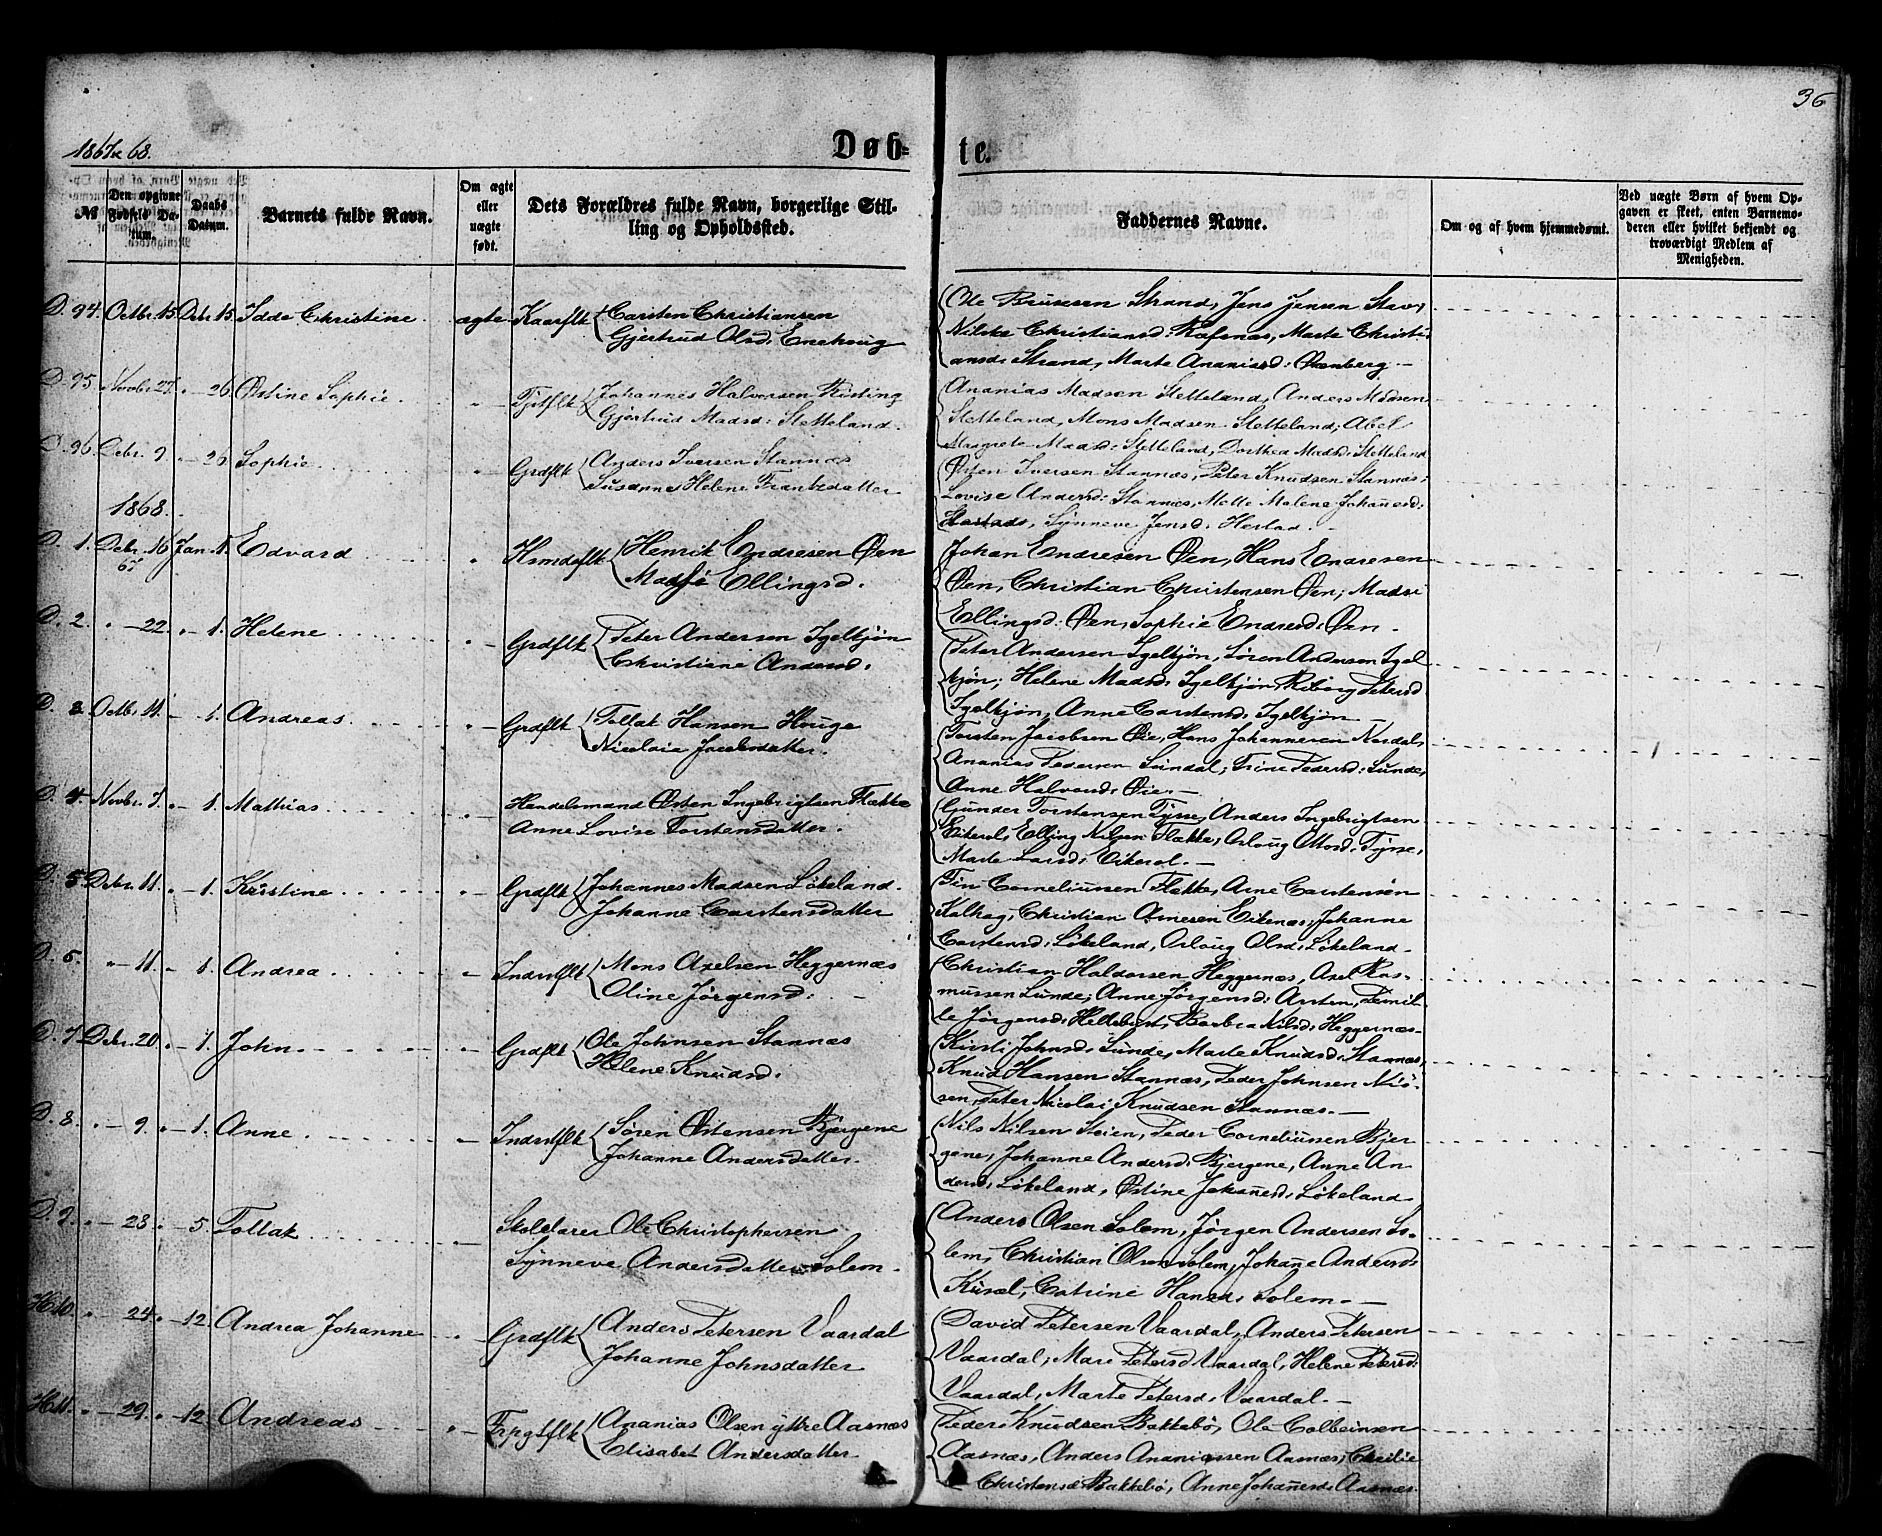 36
1867 & 68.
Døb-
te.
№
Den opgivne Fødsels Datum.
Daabs Datum.
Barnets fulde Navn.
Om ægte eller uægte født.
Dets Forældres fulde Navn, borgerlige Stilling og Opholdssted.
Faddernes Navne.
Om og af hvem hjemmedømt.
Ved uægte Børn af hvem Opgaven er skeet, enten Barnemoderen eller hvilket bekjendt og troværdigt Medlem af Menigheden.
D. 94. Octbr. 15 Debr. 15. Idde Christine ægte Kaarflk Carsten Christiansen
Gjertrud Olsd: Enehoug
Ole Strand, Jens Jensen Stav,
Christiansd: Rafsnæs, Marte Christi
ansd: Strand, Marte Ananiasd:
D. 95 Novbr. 27. " 26 Østine Sophie. " Johannes Halvorsen
Gjertrud Madsd: Sletteland.
Ananias Madsen Sletteland, Anders Madsen
Sletteland, Mons Madsen Sletteland, Abel
Margrete Madsd: Sletteland, Dorthea Madsd: Sletteland
D. 96 Debr. 9. " 26 Sophie. " Grdflk Anders Iversen Stannæs
Susanne Helene Frantzdatter
Østen Iversen Stannæs, Peter Knudsen Stannæs,
Lovise Andersd: Stannæs, Mette Malene Johannesd:
Synneve Jensd: Herstad.
1868.
D. 1. Debr. 16 Jan. 1. Edvard " Hsmdsflk Henrik Endresen Øen
67
Madsi Ellingsd.
Johan Endresen Øen, Hans Endresen
Øen, Christian Christensen Øen; Madsi
Ellingsd: Øen, Sophie Endresd: Øen.
D. 2. " 22. " 1. Helene " Grdflk Peter Andersen Igelkjøn
Christiane Andersd:
Peter Andersen Igelkjøn, Søren Andersen Igel
kjøn; Helene Madsd: Igelkjøn, Petersd
Igelkjøn, Anne Carstensd: Igelkjøn
D. 3. Octbr. 11. 1. Andreas. " Grdflk Tollak Hansen Houge
Nicolaia Jacobsdatter.
Torsten Jacobsen Øie, Hans Johannesen Nordal,
Ananias Pedersen Søndal; Trine Pedersd: Sunde,
Anne Halvorsd: Øie.
D. 4. Novbr. 7. " 1. Mathias. " Handelsmand Østen Ingebrigtsen Flække
Anne Lovise Torstensdatter.
Gunder Torstensen Tysse, Anders Ingebrigtsen
Eikerol, Elling Nilsen Flække, Osloug Ottosd: Tysse,
Marte Larsd: Eikerol.
D. 5 Debr. 11. " 1. Kristine " Grdflk Johannes Madsen Løkeland.
Johanne Carstensdatter
Corneliussen Flække, Arne Carstensen
Kalhag, Christian Arnesen Eikenæs, Johanne
Carstensd: Løkeland, Osloug Olsd: Løkeland.
D. 6. " 11. 1. Andrea " Indrstflk Mons Axelsen Heggernæs
Oline Jørgensd:
Christian Haldorsen Heggernæs, Axel Ras-
mussen Sunde; Anne Jørgensd: Pernil-
le Jørgensd: Barbra Nilsd: Heggernæs.
D. 7 Debr. 20. " 1. John. " Grdflk Ole Johnsen Stannæs
Helene Knudsd.
Kirsti Johnsd: Sunde, Marte Knudsd: Stannæs,
Knud Hansen Stannæs, Peder Johnsen
Peter Nicolai Knudsen Stannæs.
D. 8. " 9. " 1. Anne. Indrstflk Søren Østensen Bjergene
Johanne Andersdatter.
Nils Nilsen Støien, Peder Corneliussen Bjer
gene, Johanne Andersd: Bjergene, Anne An
dersd: Løkeland, Østine Johannesd: Løkeland
D. 9. " 23. 5. Tollak Skolelærer Ole Christophersen
Synneve Andersdatter Solem.
Anders Olsen Solem, Jørgen Andersen So-
lem, Christian Olsen Solem, Johanne Andersd:
Catrine Hansd: Solem.
H. 10. " 24. 12. Andrea Johanne " Grdflk Anders Petersen Vaardal
Johanne Johnsdatter
David Petersen Vaardal, Anders Petersen
Vaardal, Mari Petersd Vaardal, Helene Petersd:
Vaardal, Marte Petersd: Vaardal.
H. 11. " 29. " 12 Andreas " Frpgtflk Ananias Olsen yttre Aasnæs
Elisabet Andersdatter
Peder Knudsen Bakkebø, Ole Colbeinsen
Aasnæs, Anders Ananiassen Aasnæs, Cecilie
Christensd: Bakkebø, Anne Johannesd: Aasnæs.